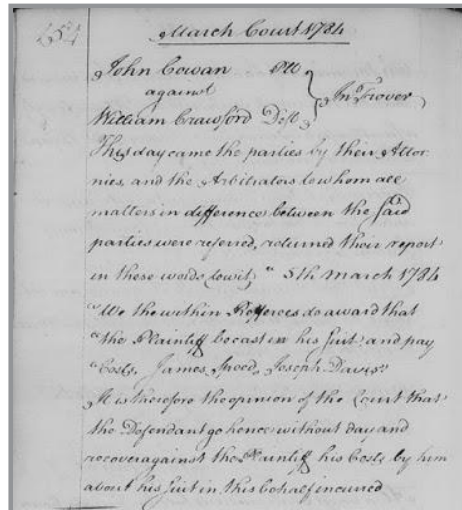 March Court 1784
John Cowan Plt
against
In Trover
William Crawford Deft
This day came the parties by their Attor
nies, and the Arbitrators to whom all
matters in difference between the said
parties were referred, returned their report
in these words towit, " 5th March 1784
"We the within Refferees do award that
"the Plaintiff be cast in his suit and pay
"Costs, James Speed, Joseph Davis"
It is therefore the opinion of the Court that
the Defendant go hence without day and
recover against the Plaintiff his Costs by him
about his suit in this behalf incurred